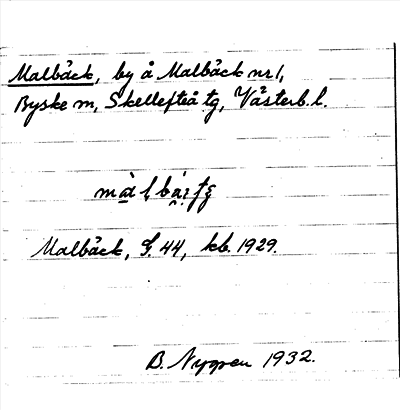 Malbäck, by å Malbäck nr 1,
Byske sn, Skellefteå tg, Västerb. l.
Malbäck, S. 44, kb. 1929.
B. Nygren 1932.